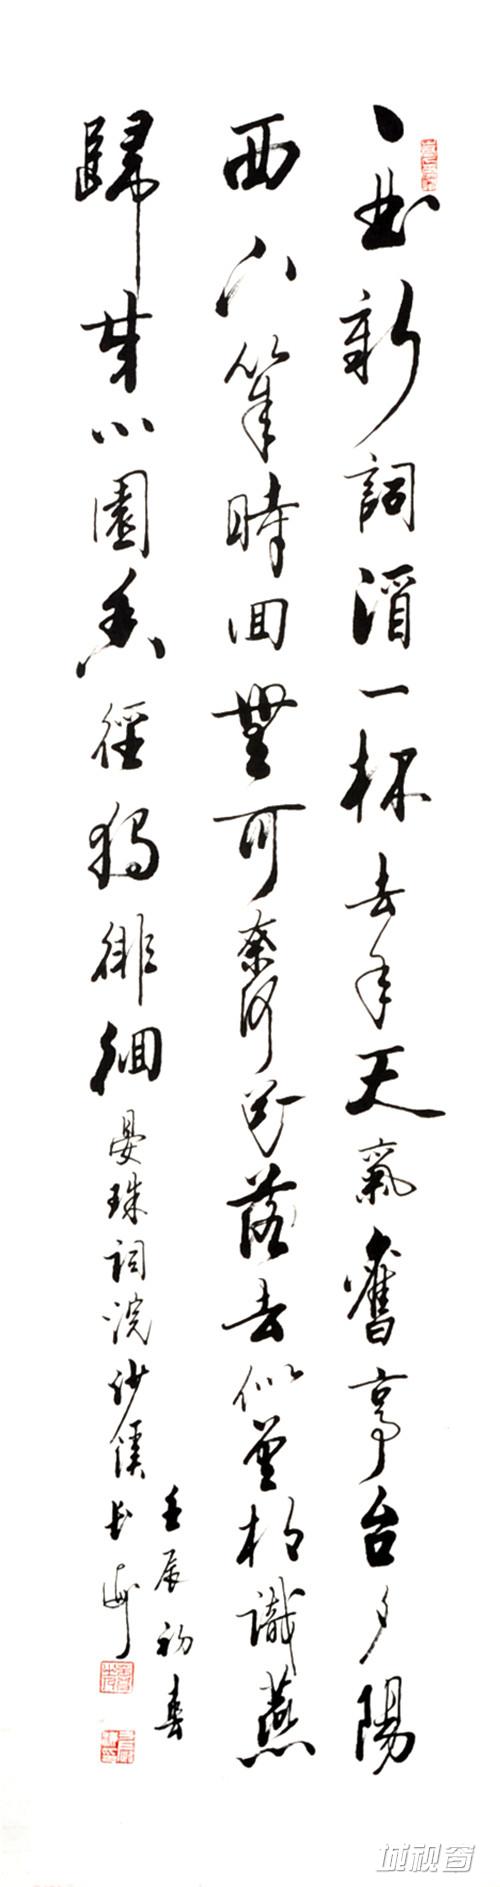 一曲新詞酒一杯去年天氣舊亭台夕陽
西下幾時回無可奈何花落去似曾相識燕
歸來小園香徑獨徘徊晏珠詞浣沙溪
壬辰初春
城视窗